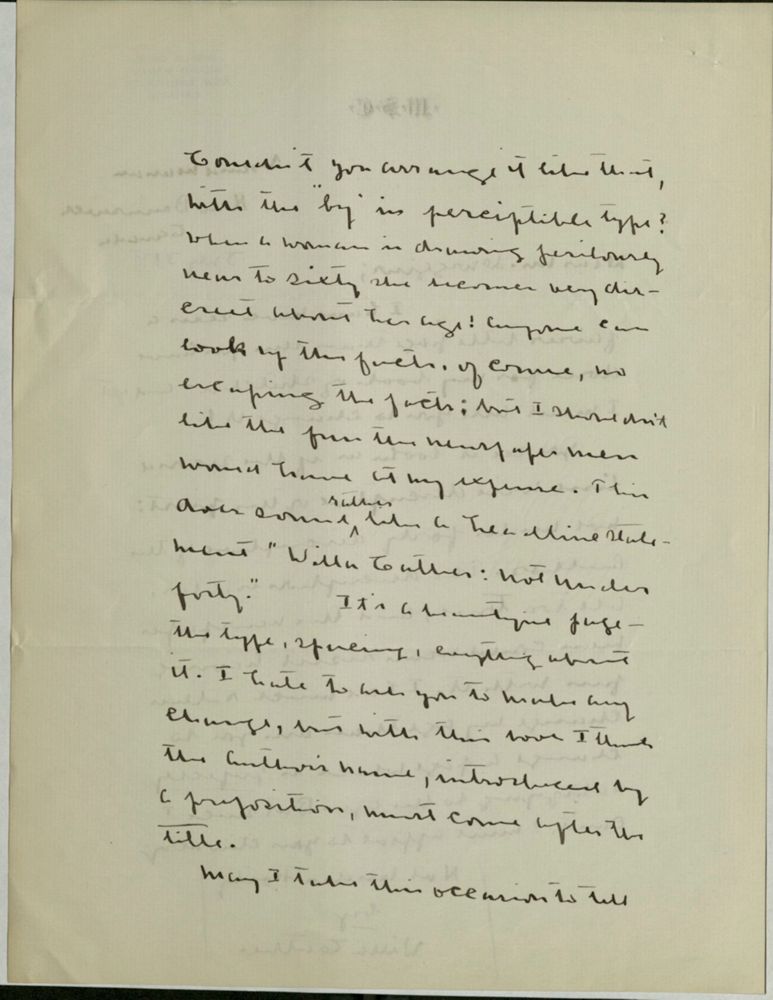 Couldn't you arrange it like that,
with the "by" in perceptible type?
When a woman is drawing perilously
near to sixty she becomes very dis-
creet about her age! Anyone can
look up the facts, of course, no
escaping the facts; but I shouldn't
like the fun the newspaper men
would have at my expense. This
does sound rather like a headline state-
ment "Willa Cather: not under
forty." It's a beautiful page —
the type, spacing, everything about
it. I hate to ask you to make any
change, but with this book I think
the author's name, introduced by
a preposition, must come after the
title.
May I take this occasion to tell